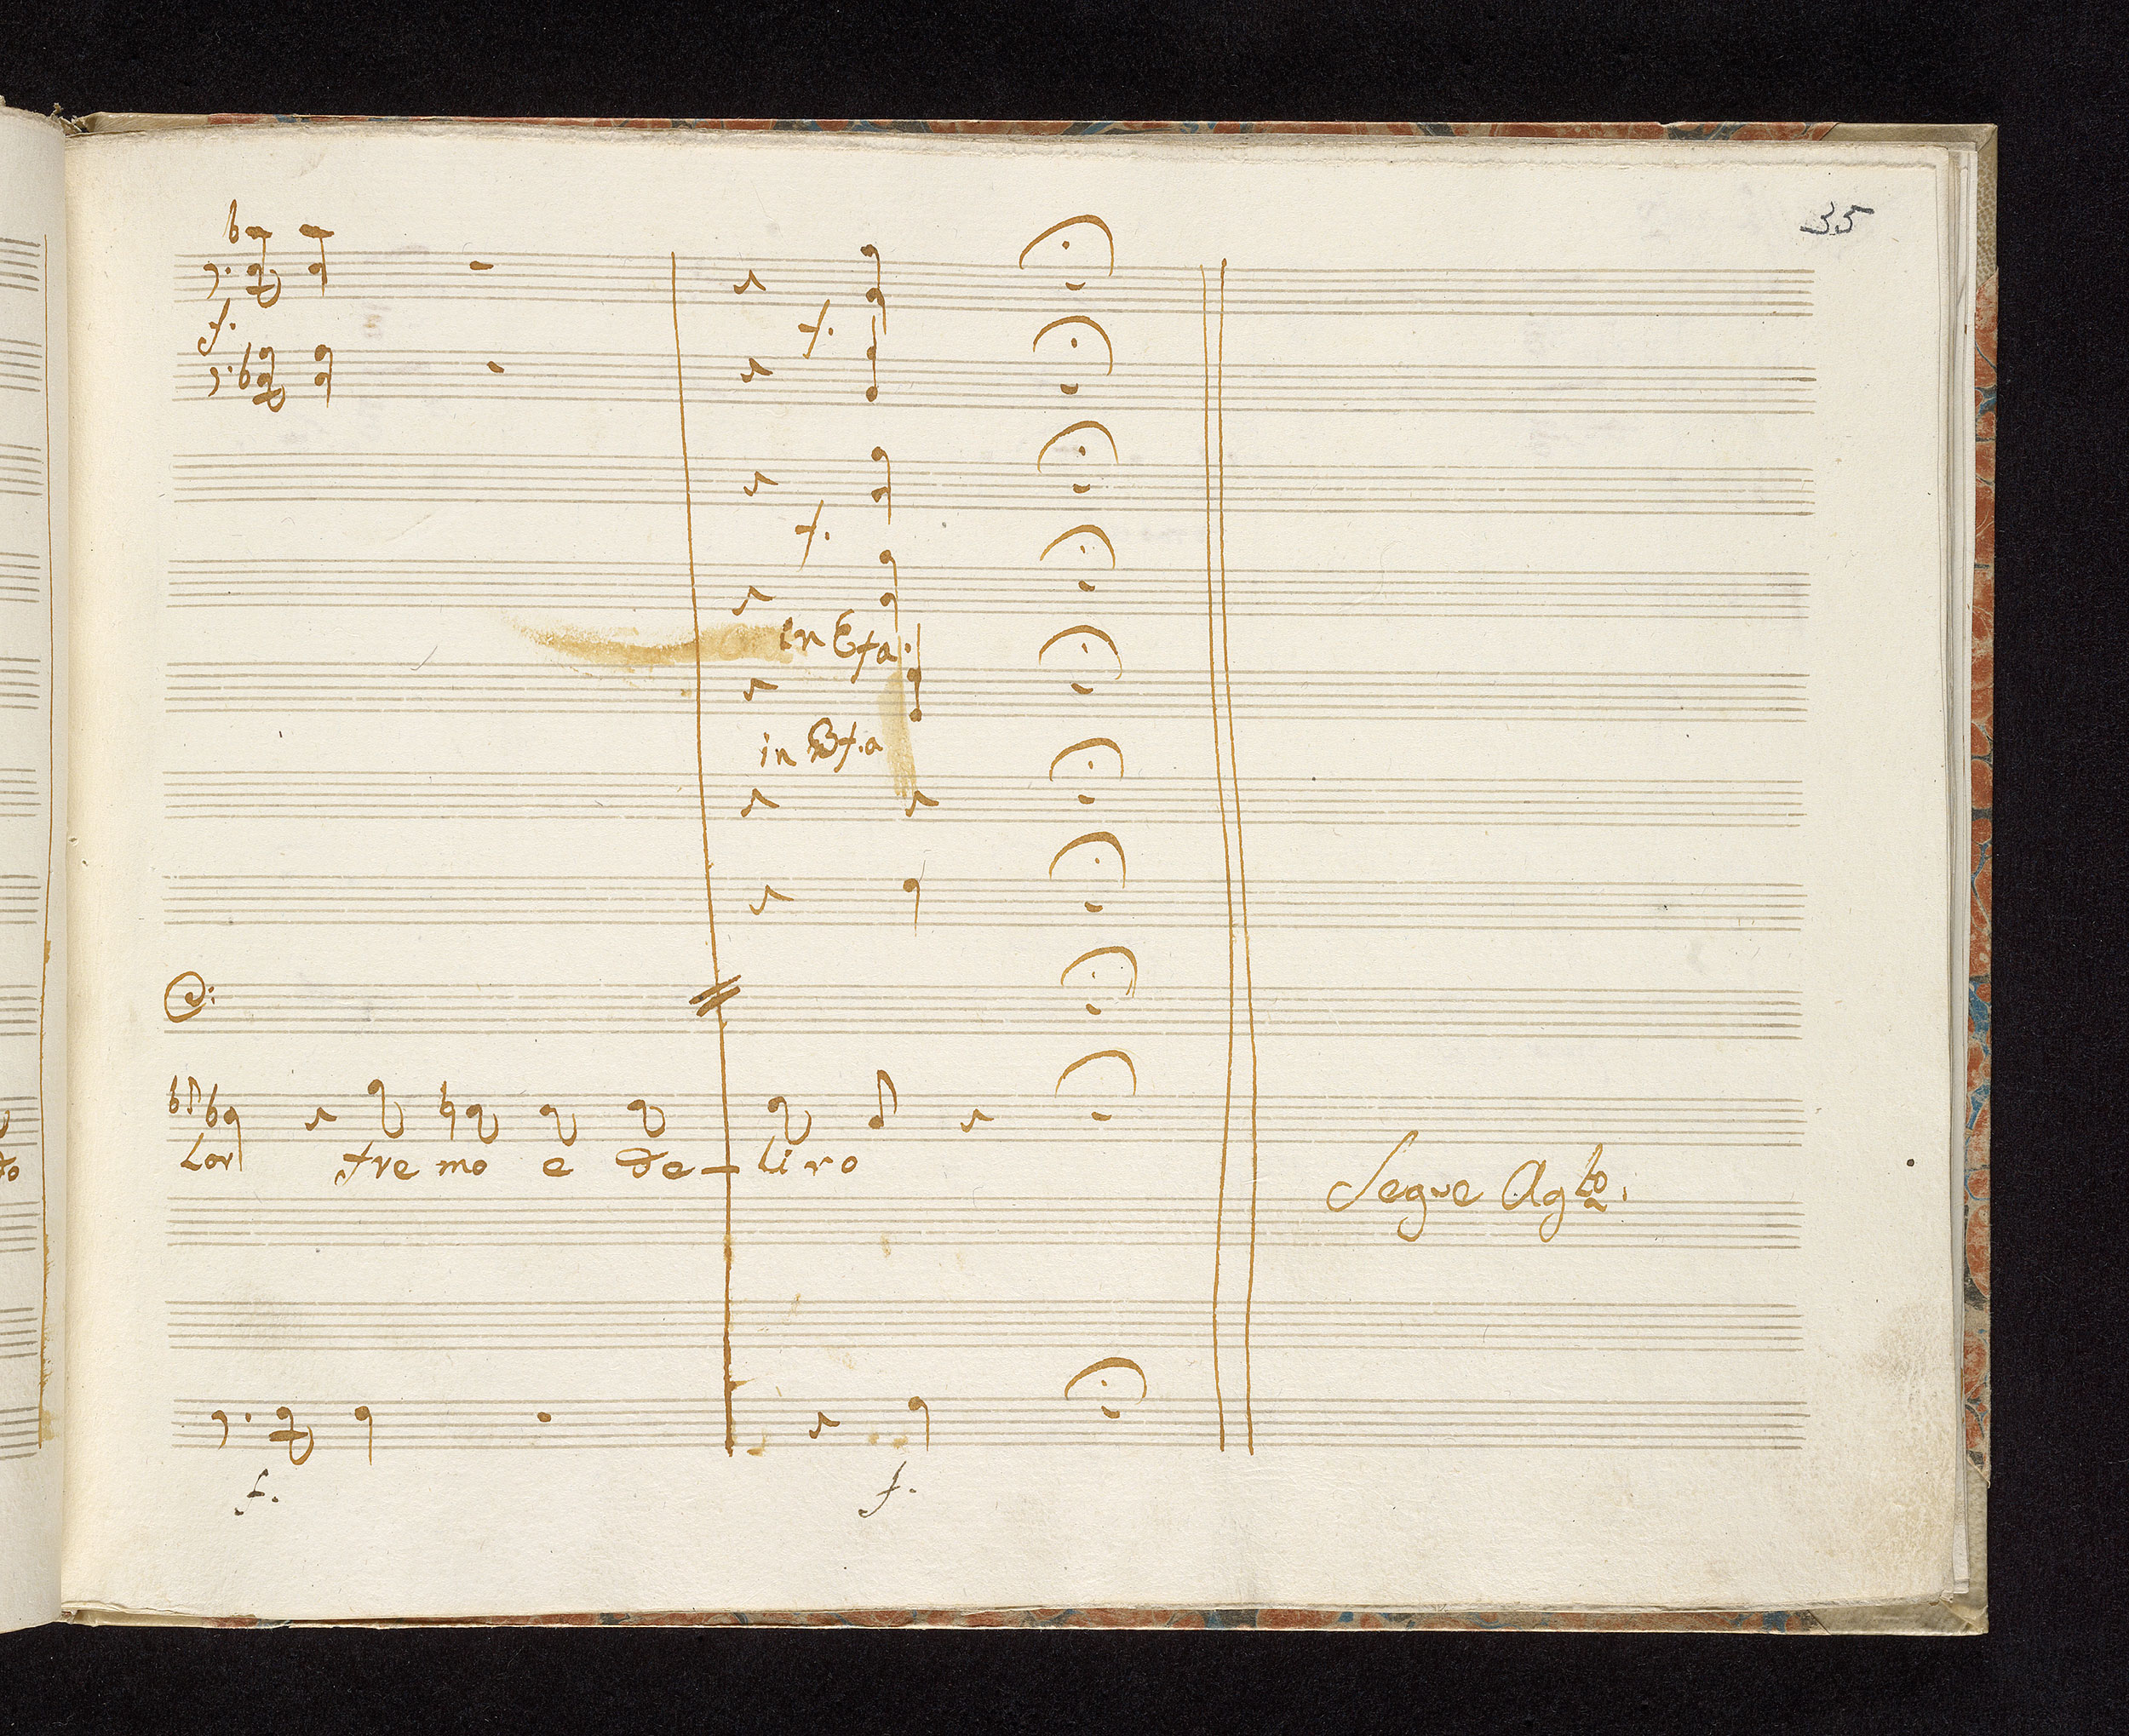 35
f.
f.
f.
in Efa.
in Bf.a
Lor fremo e de- liro
to
Segue Agto.
f. f.